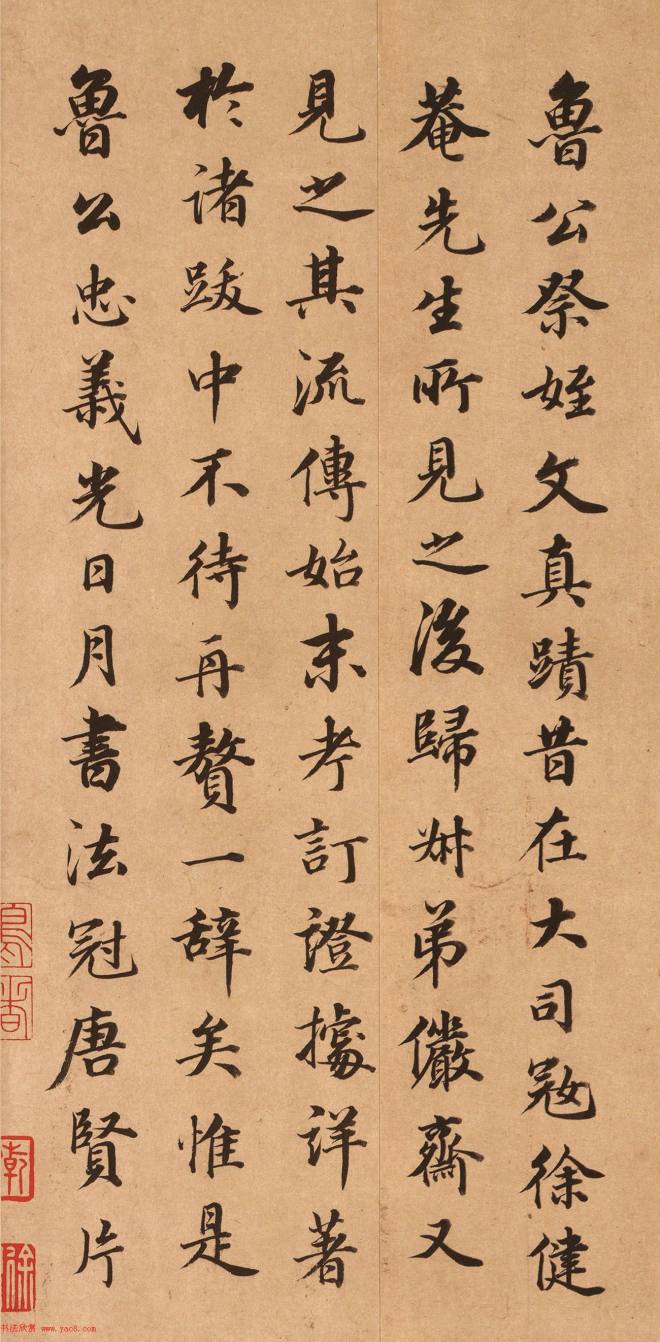 魯公祭姪文真蹟昔在大司寇徐健
菴先生所見之後歸叔弟儼齋又
見之其流傳始末考訂證據詳著
於諸跋中不待再贅一辞矣惟是
魯公忠義光日月書法冠唐賢片
乾
书法欣赏 www.yac8.com